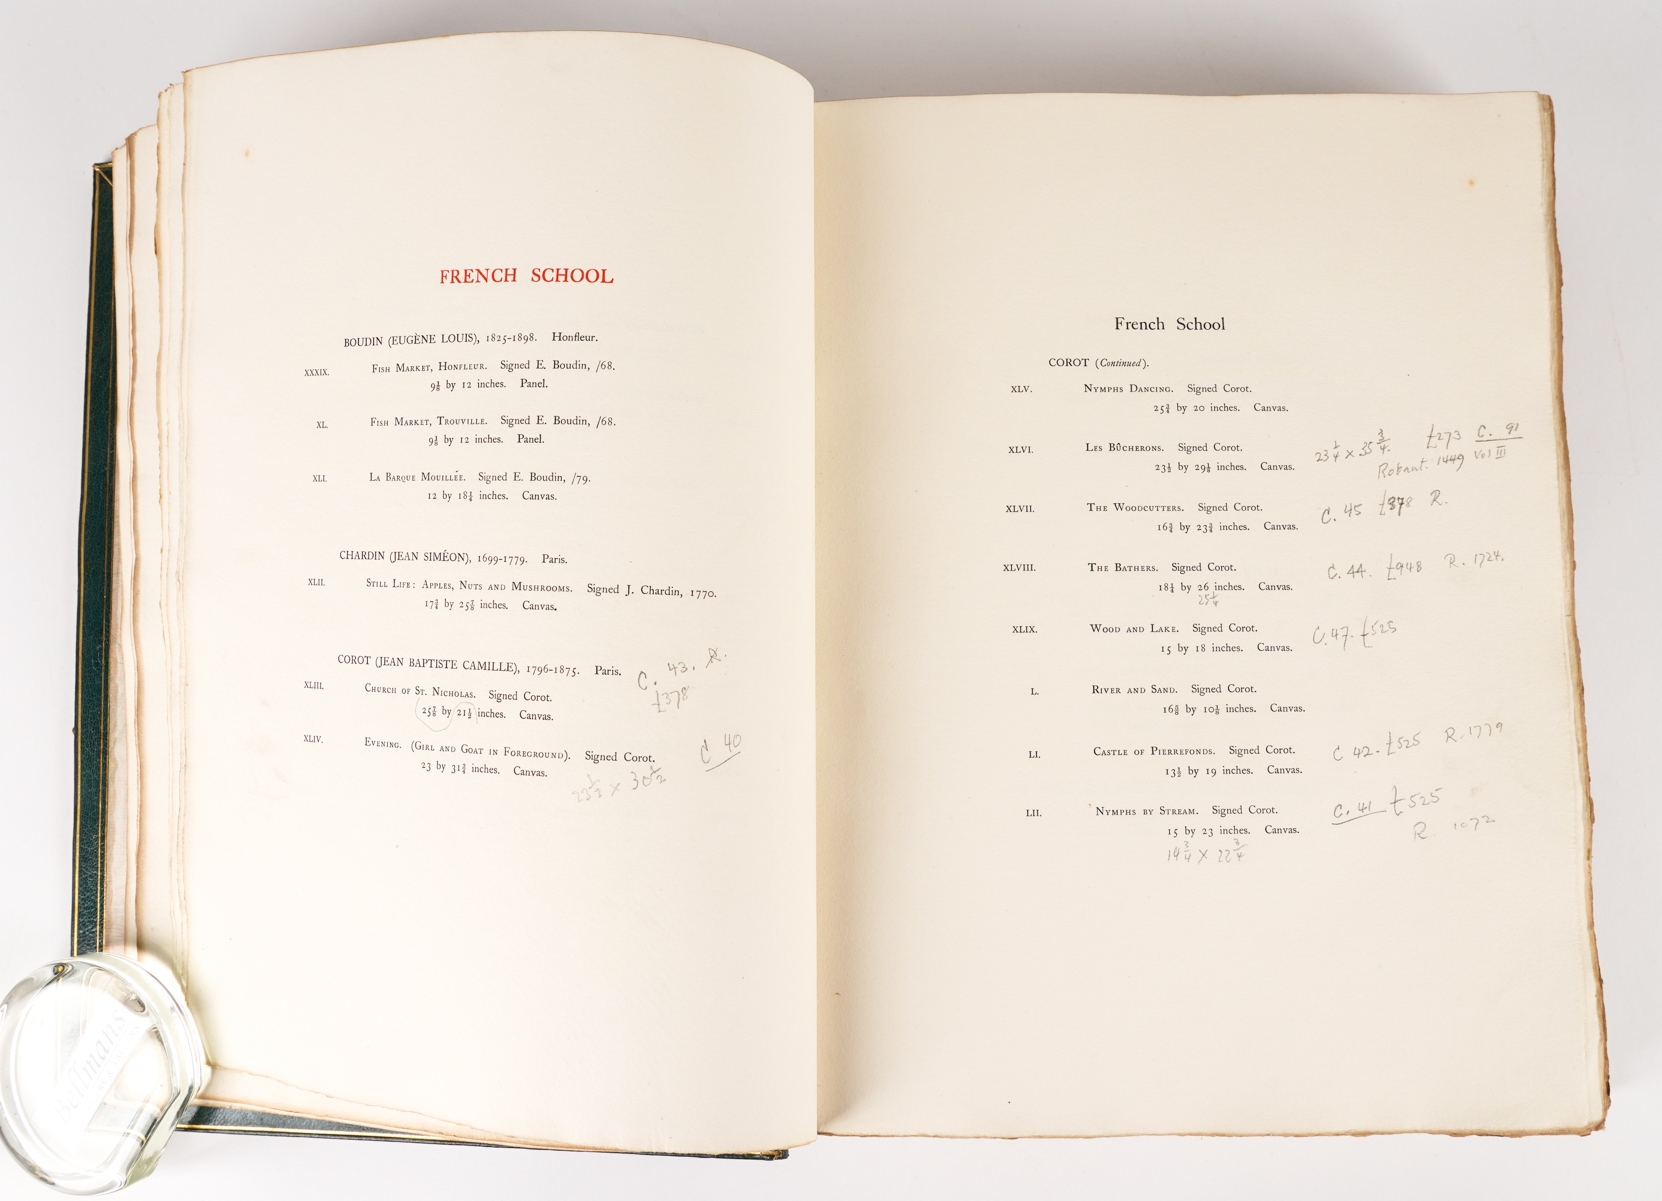 FRENCH SCHOOL
BOUDIN (EUGÈNE LOUIS), 1825-1898. Honfleur.
XXXIX. Fish Market, Honfleur. Signed E. Boudin, /68.
9⅛ by 12 inches. Panel.
XL. Fish Market, Trouville. Signed E. Boudin, /68.
9⅛ by 12 inches. Panel.
XLI. La Barque Mouillée. Signed E. Boudin, /79.
12 by 18¼ inches. Canvas.
CHARDIN (JEAN SIMÉON), 1699-1779. Paris.
XLII. Still Life: Apples, Nuts and Mushrooms. Signed J. Chardin, 1770.
17¾ by 25⅞ inches. Canvas.
COROT (JEAN BAPTISTE CAMILLE), 1796-1875. Paris. C. 43. R.
XLIII. Church of St. Nicholas. Signed Corot. £378
25⅞ by 21½ inches. Canvas.
XLIV. Evening. (Girl and Goat in Foreground). Signed Corot. C 40
23 by 31¾ inches. Canvas. 23½ x 30½
French School
COROT (Continued).
XLV. Nymphs Dancing. Signed Corot.
25¾ by 20 inches. Canvas.
XLVI. Les Bûcherons. Signed Corot. 23¼ x 35¾. £273 C. 91
23½ by 29½ inches. Canvas. Robaut. 1449 Vol III
XLVII. The Woodcutters. Signed Corot. C. 45 £378 R.
16¾ by 23¾ inches. Canvas.
XLVIII. The Bathers. Signed Corot. C. 44. £948 R. 1724.
18¼ by 26 inches. Canvas.
25¼
XLIX. Wood and Lake. Signed Corot. C. 47. £525
15 by 18 inches. Canvas.
L. River and Sand. Signed Corot.
16⅝ by 10⅝ inches. Canvas.
LI. Castle of Pierrefonds. Signed Corot. C 42. £525 R. 1779
13½ by 19 inches. Canvas.
LII. Nymphs by Stream. Signed Corot. C. 41 £525
15 by 23 inches. Canvas. R 1072
14¾ x 22¾
Bellmans